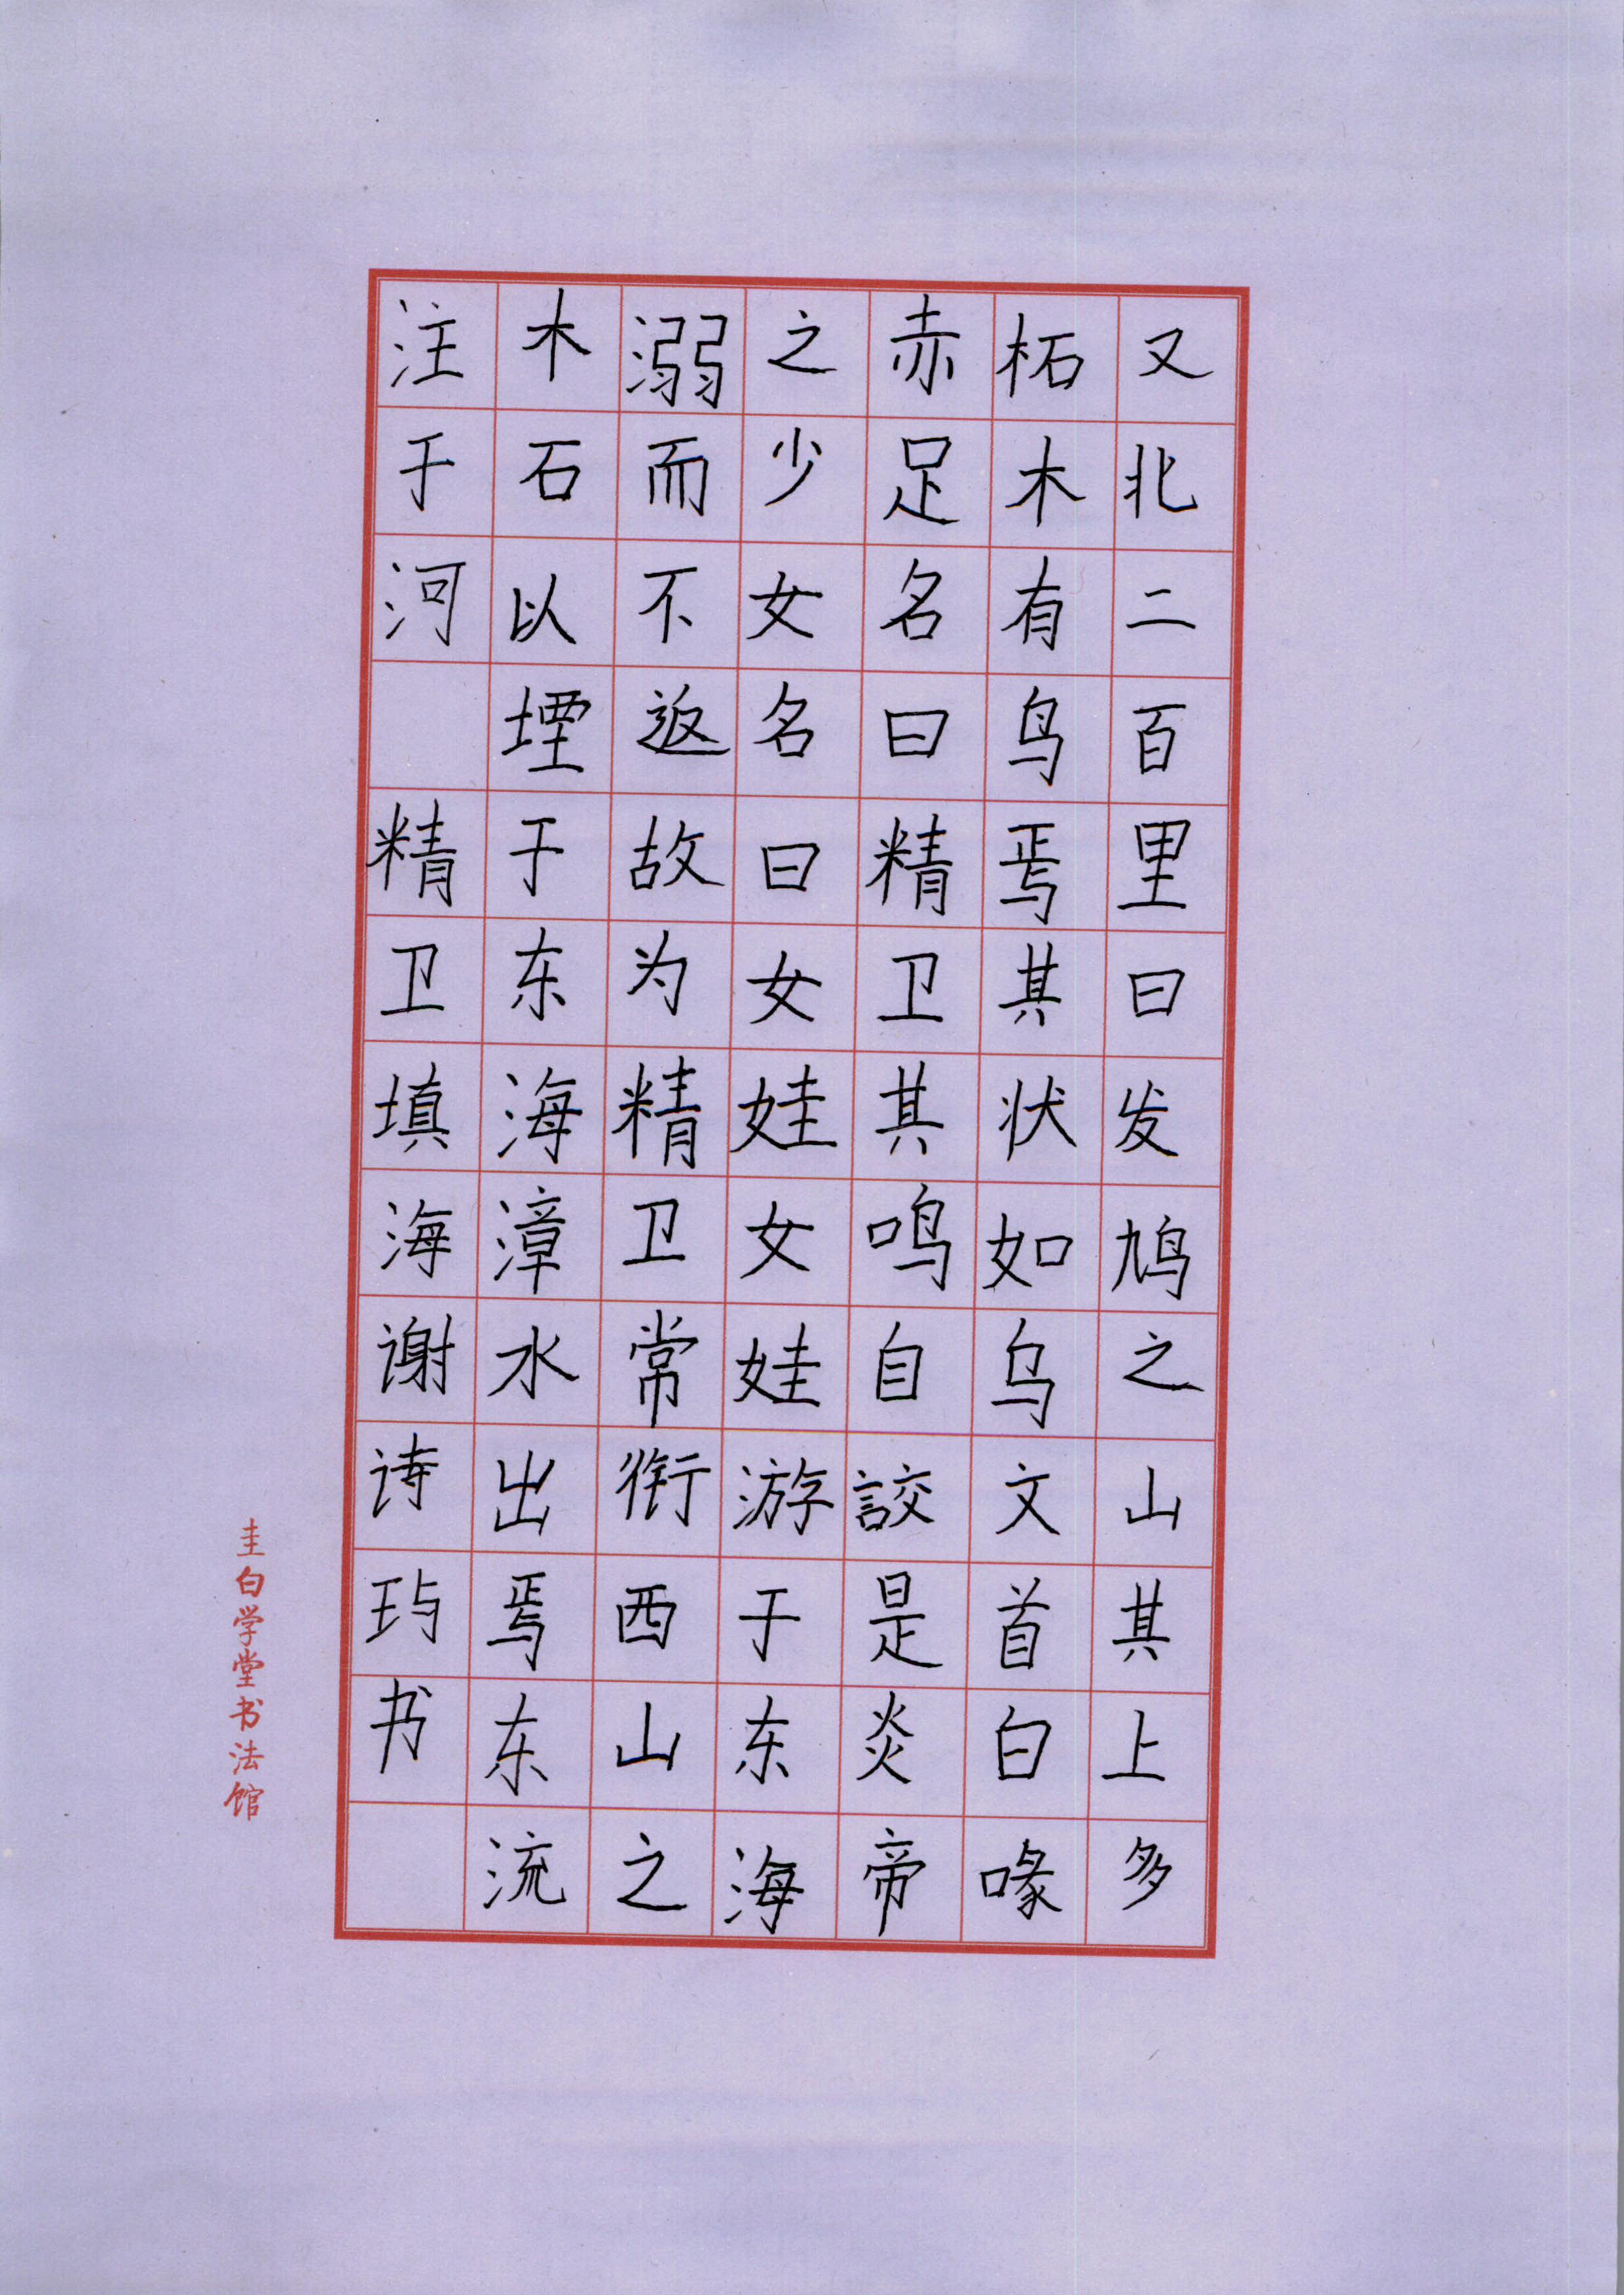 又北二百里曰发鸠之山其上多
柘木有鸟焉其状如乌文首白喙
赤足名曰精卫其鸣自詨是炎帝
之少女名曰女娃女娃游于东海
溺而不返故为精卫常衔西山之
木石以堙于东海漳水出焉东流
注于河 精卫填海谢诗玙书
圭白学堂书法馆